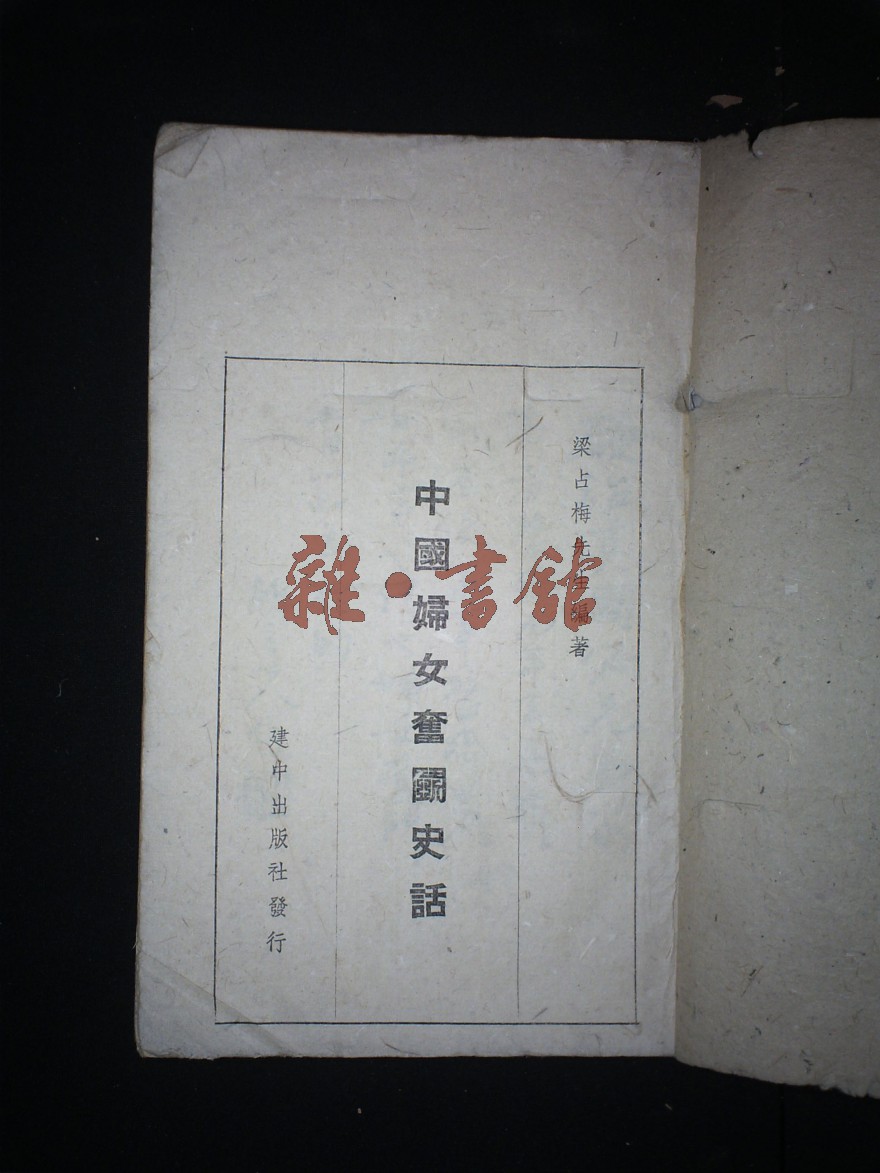 梁占梅先生編著
中國婦女奮鬭史話
建中出版社發行
雜·書館